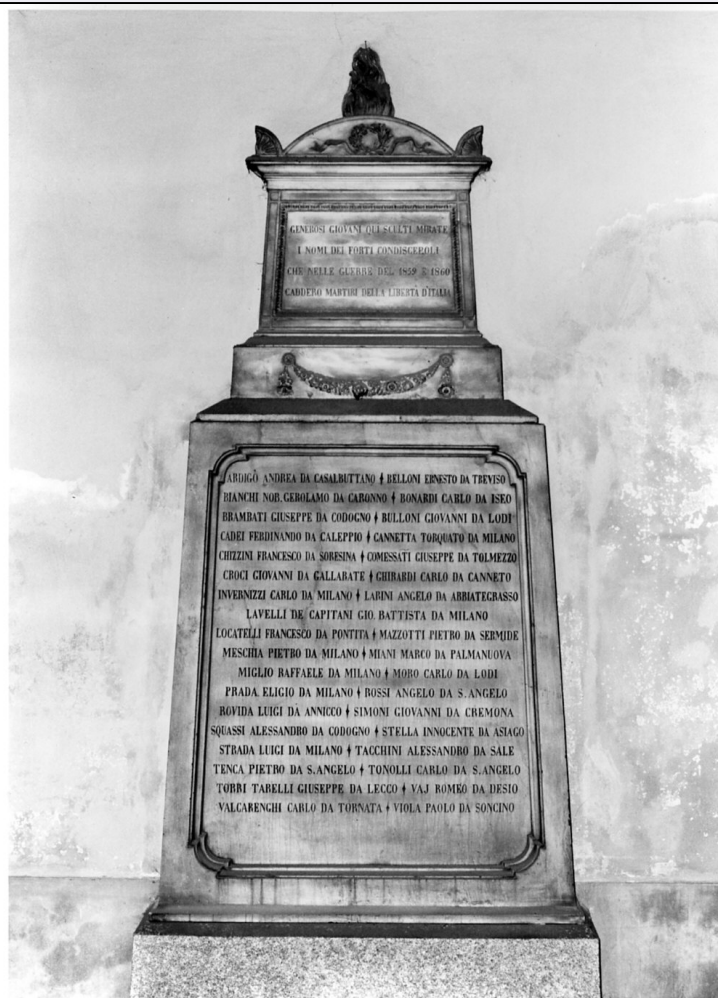 GENEROSI GIOVANI QUI SCULTI MIRATE
I NOMI DEI FORTI CONDISCEPOLI
CHE NELLE GUERRE DEL 1859 E 1860
CADDERO MARTIRI DELLA LIBERTÀ D'ITALIA
ARDIGÒ ANDREA DA CASALBUTTANO BELLONI ERNESTO DA TREVISO
BIANCHI NOB. GEROLAMO DA CARONNO BONARDI CARLO DA ISEO
BRAMBATI GIUSEPPE DA CODOGNO BULLONI GIOVANNI DA LODI
CADEI FERDINANDO DA CALEPPIO CANNETTA TORQUATO DA MILANO
CHIZZINI FRANCESCO DA SORESINA COMESSATI GIUSEPPE DA TOLMEZZO
CROCI GIOVANNI DA GALLARATE GHIRARDI CARLO DA CANNETO
INVERNIZZI CARLO DA MILANO LARINI ANGELO DA ABBIATEGRASSO
LAVELLI DE CAPITANI GIO. BATTISTA DA MILANO
LOCATELLI FRANCESCO DA PONTITA MAZZOTTI PIETRO DA SERMIDE
MESCHIA PIETRO DA MILANO MIANI MARCO DA PALMANUOVA
MIGLIO RAFFAELE DA MILANO MORO CARLO DA LODI
PRADA ELIGIO DA MILANO ROSSI ANGELO DA S. ANGELO
ROVIDA LUIGI DA ANNICCO SIMONI GIOVANNI DA CREMONA
SQUASSI ALESSANDRO DA CODOGNO STELLA INNOCENTE DA ASIAGO
STRADA LUIGI DA MILANO TACCHINI ALESSANDRO DA SALE
TENCA PIETRO DA S. ANGELO TONOLLI CARLO DA S. ANGELO
TORRI TARELLI GIUSEPPE DA LECCO VAJ ROMEO DA DESIO
VALCARENGHI CARLO DA TORNATA VIOLA PAOLO DA SONCINO